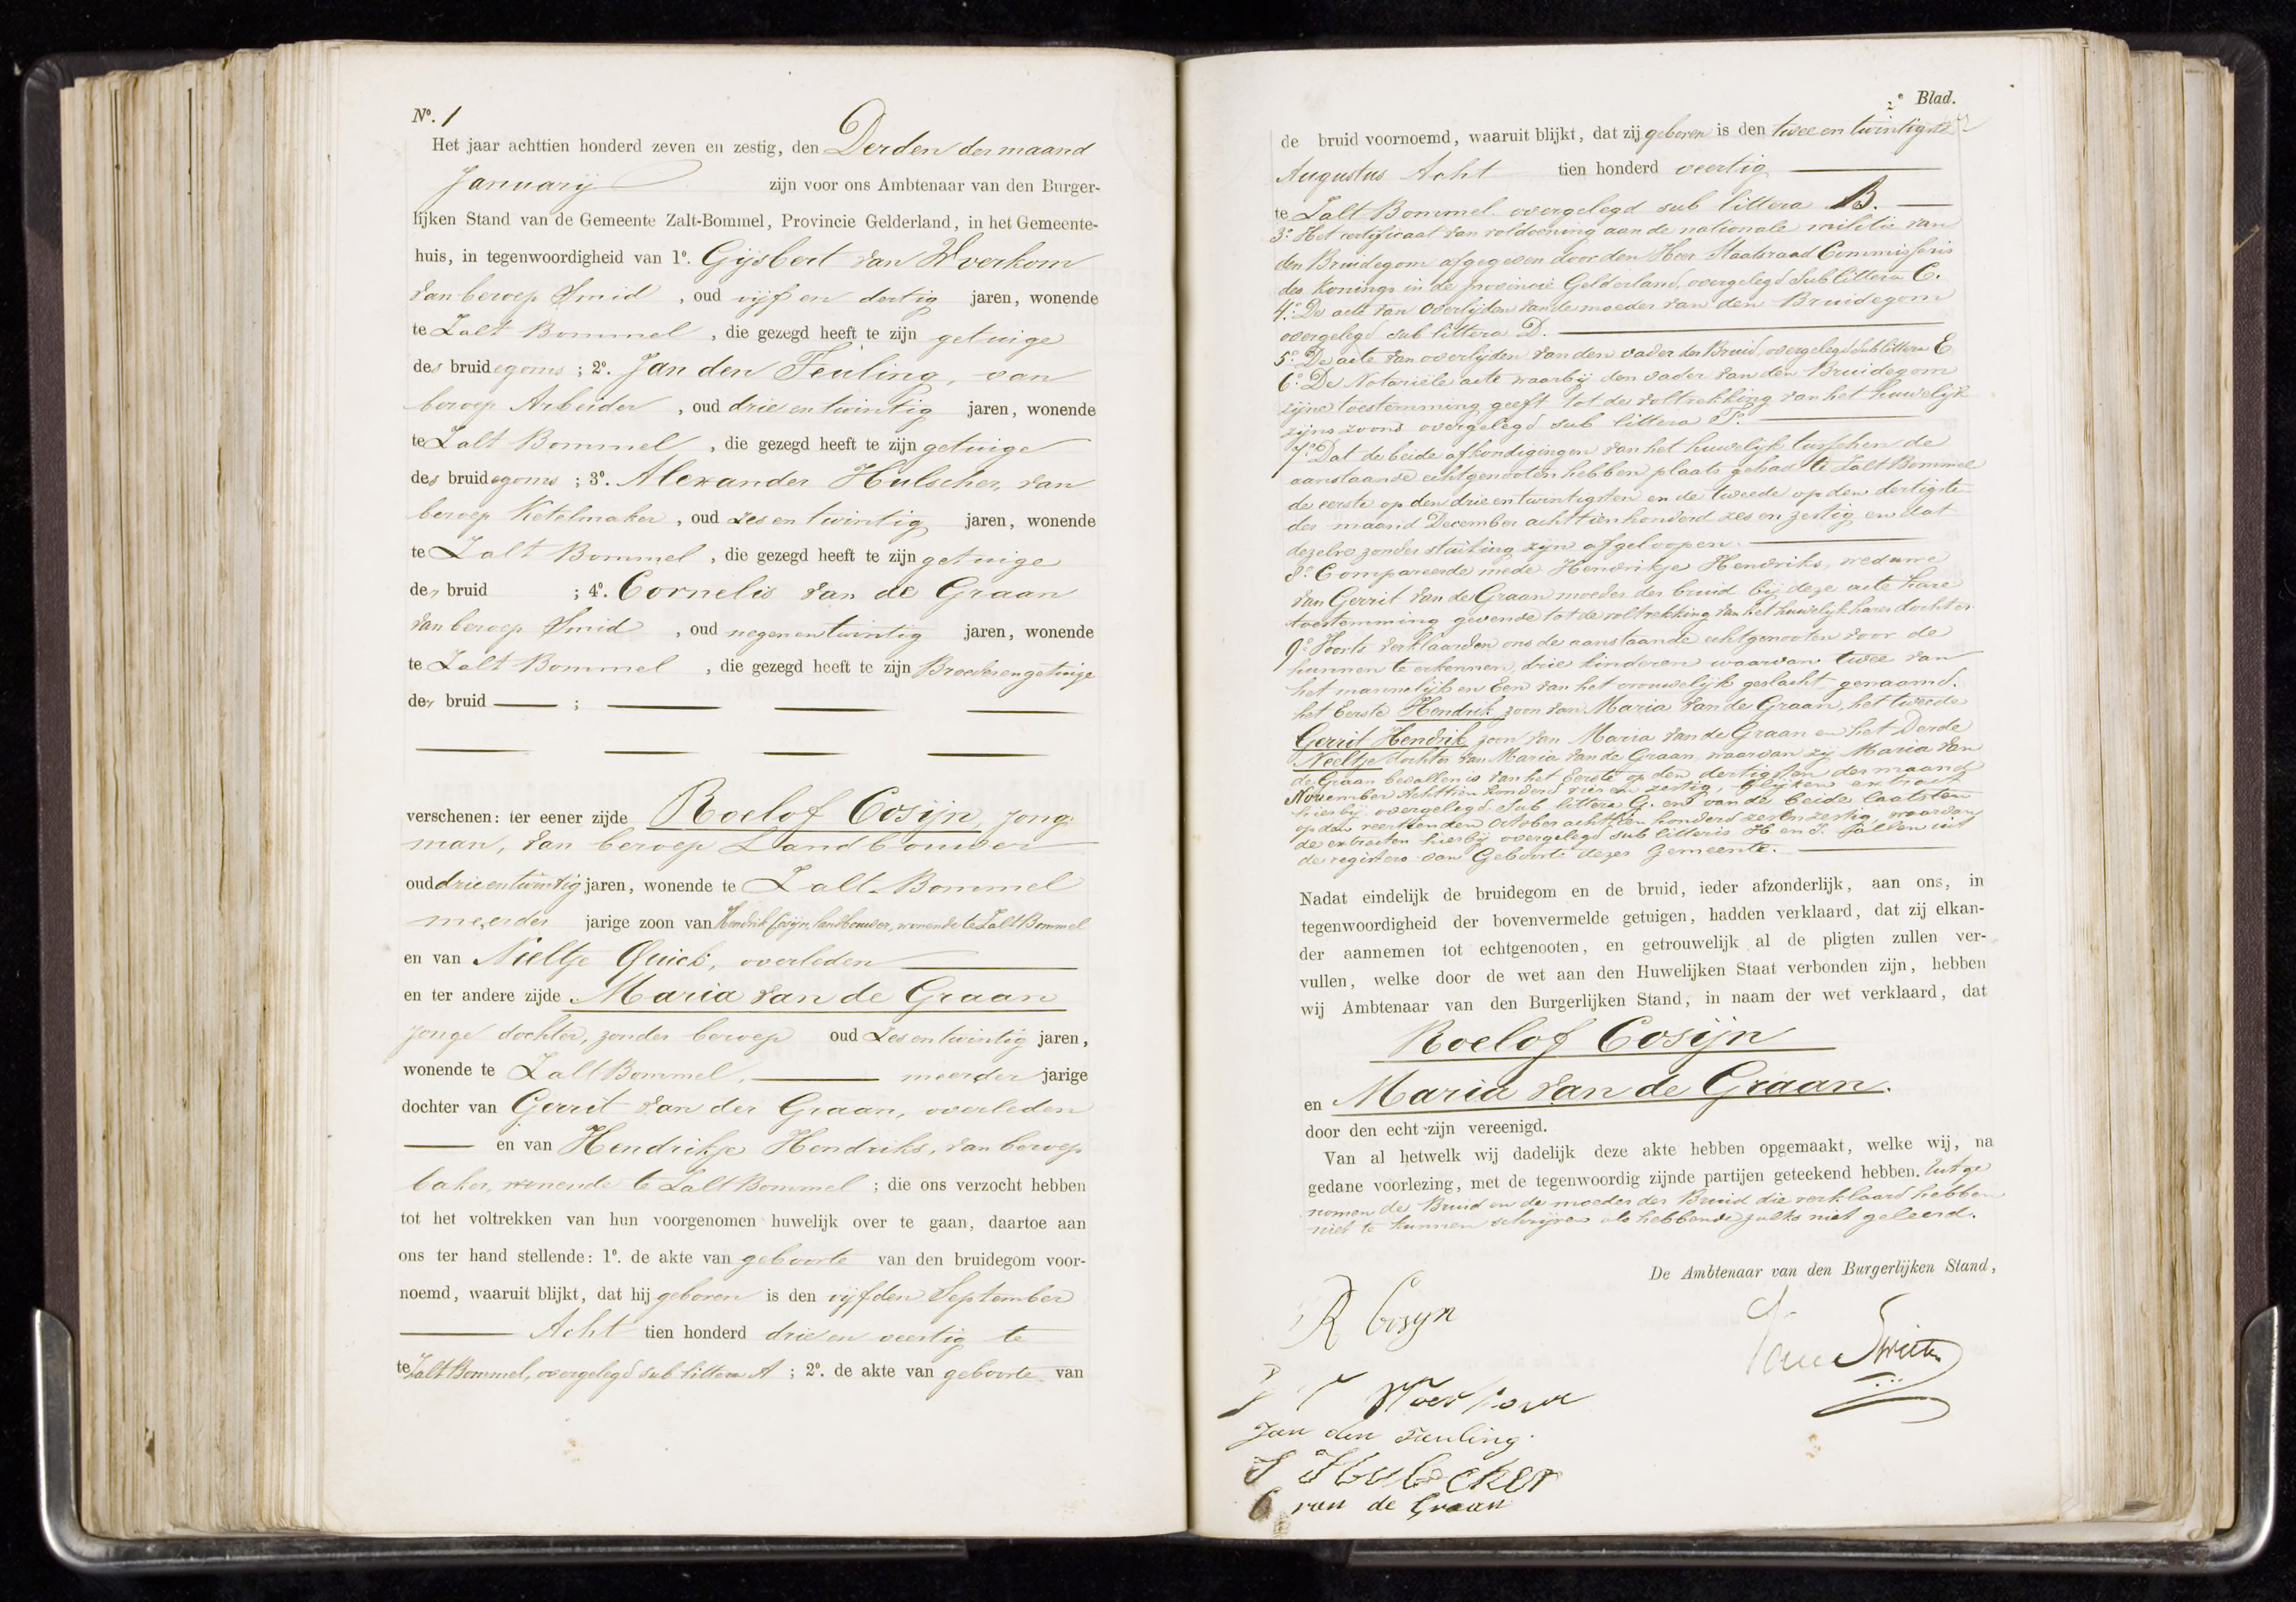 No. 1
Het jaar achttien honderd zeven en zestig, den Derden der maand
January zijn voor ons Ambtenaar van den Burger-
lijken Stand van de Gemeente Zalt-Bommel, Provincie Gelderland, in het Gemeente-
huis, in tegenwoordigheid van 1o. Gijsbert van Woerkom
van beroep Smid , oud vijf en dertig jaren, wonende
te Zalt Bommel , die gezegd heeft te zijn getuige
des bruidegoms ; 2o. Jan den Teuling, van
beroep Arbeider , oud drie en twintig jaren, wonende
te Zalt Bommel , die gezegd heeft te zijn getuige
des bruidegoms ; 3o. Alexander Hulscher, van
beroep Ketelmaker , oud zes en twintig jaren, wonende
te Zalt Bommel , die gezegd heeft te zijn getuige
der bruid ; 4o. Cornelis van de Graan
van beroep Smid , oud negen en twintig jaren, wonende
te Zalt Bommel , die gezegd heeft te zijn Broeder en getuige
der bruid ;
verschenen: ter eener zijde Roelof Cosijn, jong
man, van beroep Landbouwer
oud drie en twintig jaren, wonende te Zalt-Bommel
meerder jarige zoon van Hendrik Cosijn, landbouwer, wonende te Zalt Bommel
en van Neeltje Quick, overleden
en ter andere zijde Maria van de Graan
jonge dochter, zonder beroep oud zes en twintig jaren,
wonende te Zalt Bommel, meerder jarige
dochter van Gerrit van der Graan, overleden
en van Hendrikje Hendriks, van beroep
baker, wonende te Zalt Bommel ; die ons verzocht hebben
tot het voltrekken van hun voorgenomen huwelijk over te gaan, daartoe aan
ons ter hand stellende: 1o. de akte van geboorte van den bruidegom voor-
noemd, waaruit blijkt, dat hij geboren is den vijfden September
Acht tien honderd drie en veertig te
te Zalt Bommel, overgelegd sub littera A ; 2o. de akte van geboorte van
2e Blad.
de bruid voornoemd, waaruit blijkt, dat zij geboren is den twee en twintigste
Augustus Acht tien honderd veertig
te Zalt Bommel overgelegd sub littera B.
3o. Het certificaat van voldoening aan de nationale militie van
den Bruidegom afgegeven door den Heer Staatsraad Commissaris
des Konings in de provincie Gelderland, overgelegd sub littera C.
4o. De acte van overlijden van de moeder van den Bruidegom
overgelegd sub littera D.
5o. De acte van overlyden van den vader der Bruid, overgelegd sub littera E
6o. De Notariële acte waarbij den vader van den Bruidegom
zijne toestemming geeft tot de voltrekking van het huwelijk
zijns zoons overgelegd sub littera F.
7o. Dat de beide afkondigingen van het huwelijk tusschen de
aanstaande echtgenooten hebben plaats gehad te Zalt Bommel
de eerste op den drie en twintigsten en de tweede op den dertigste
der maand December achttienhonderd zes en zestig en dat
dezelve zonder stuiting zijn afgeloopen.
8o. Compareerde mede Hendrikje Hendriks, weduwe
van Gerrit van de Graan moeder der bruid bij deze acte hare
toestemming gevende tot de voltrekking van het huwelijk harer dochter
9o. Voorts verklaarden ons de aanstaande echtgenooten voor de
hunnen te erkennen, drie kinderen waarvan twee van
het mannelijk en Een van het vrouwelijk geslacht genaamd.
het Eerste Hendrik zoon van Maria van de Graan, het tweede
Gerrit Hendrik zoon van Maria van de Graan en het Derde
Neeltje dochter van Maria van de Graan, waarvan zij Maria van
de Graan bevallen is van het Eerste op den dertigsten der maand
November Achttien honderd vier en zestig, blijkens extract
hierbij overgelegd sub littera G. en van de beide laatsten
op den veertienden October achttien honderd zes en zestig, waarvan
de extracten hierbij overgelegd sub litteris H en I. allen uit
de registers van Geboorte dezer Gemeente.
Nadat eindelijk de bruidegom en de bruid, ieder afzonderlijk, aan ons, in
tegenwoordigheid der bovenvermelde getuigen, hadden verklaard, dat zij elkan-
der aannemen tot echtgenooten, en getrouwelijk al de pligten zullen ver-
vullen, welke door de wet aan den Huwelijken Staat verbonden zijn, hebben
wij Ambtenaar van den Burgerlijken Stand, in naam der wet verklaard, dat
Roelof Cosijn
en Maria van de Graan.
door den echt zijn vereenigd.
Van al hetwelk wij dadelijk deze akte hebben opgemaakt, welke wij, na
gedane voorlezing, met de tegenwoordig zijnde partijen geteekend hebben. Uitge
nomen de Bruid en de moeder der Bruid die verklaard hebben
niet te kunnen schrijven als hebbende zulks niet geleerd.
De Ambtenaar van den Burgerlijken Stand,
R Cosyn
Woerkom
Jan den Teuling.
Hulscher
C van de Graan